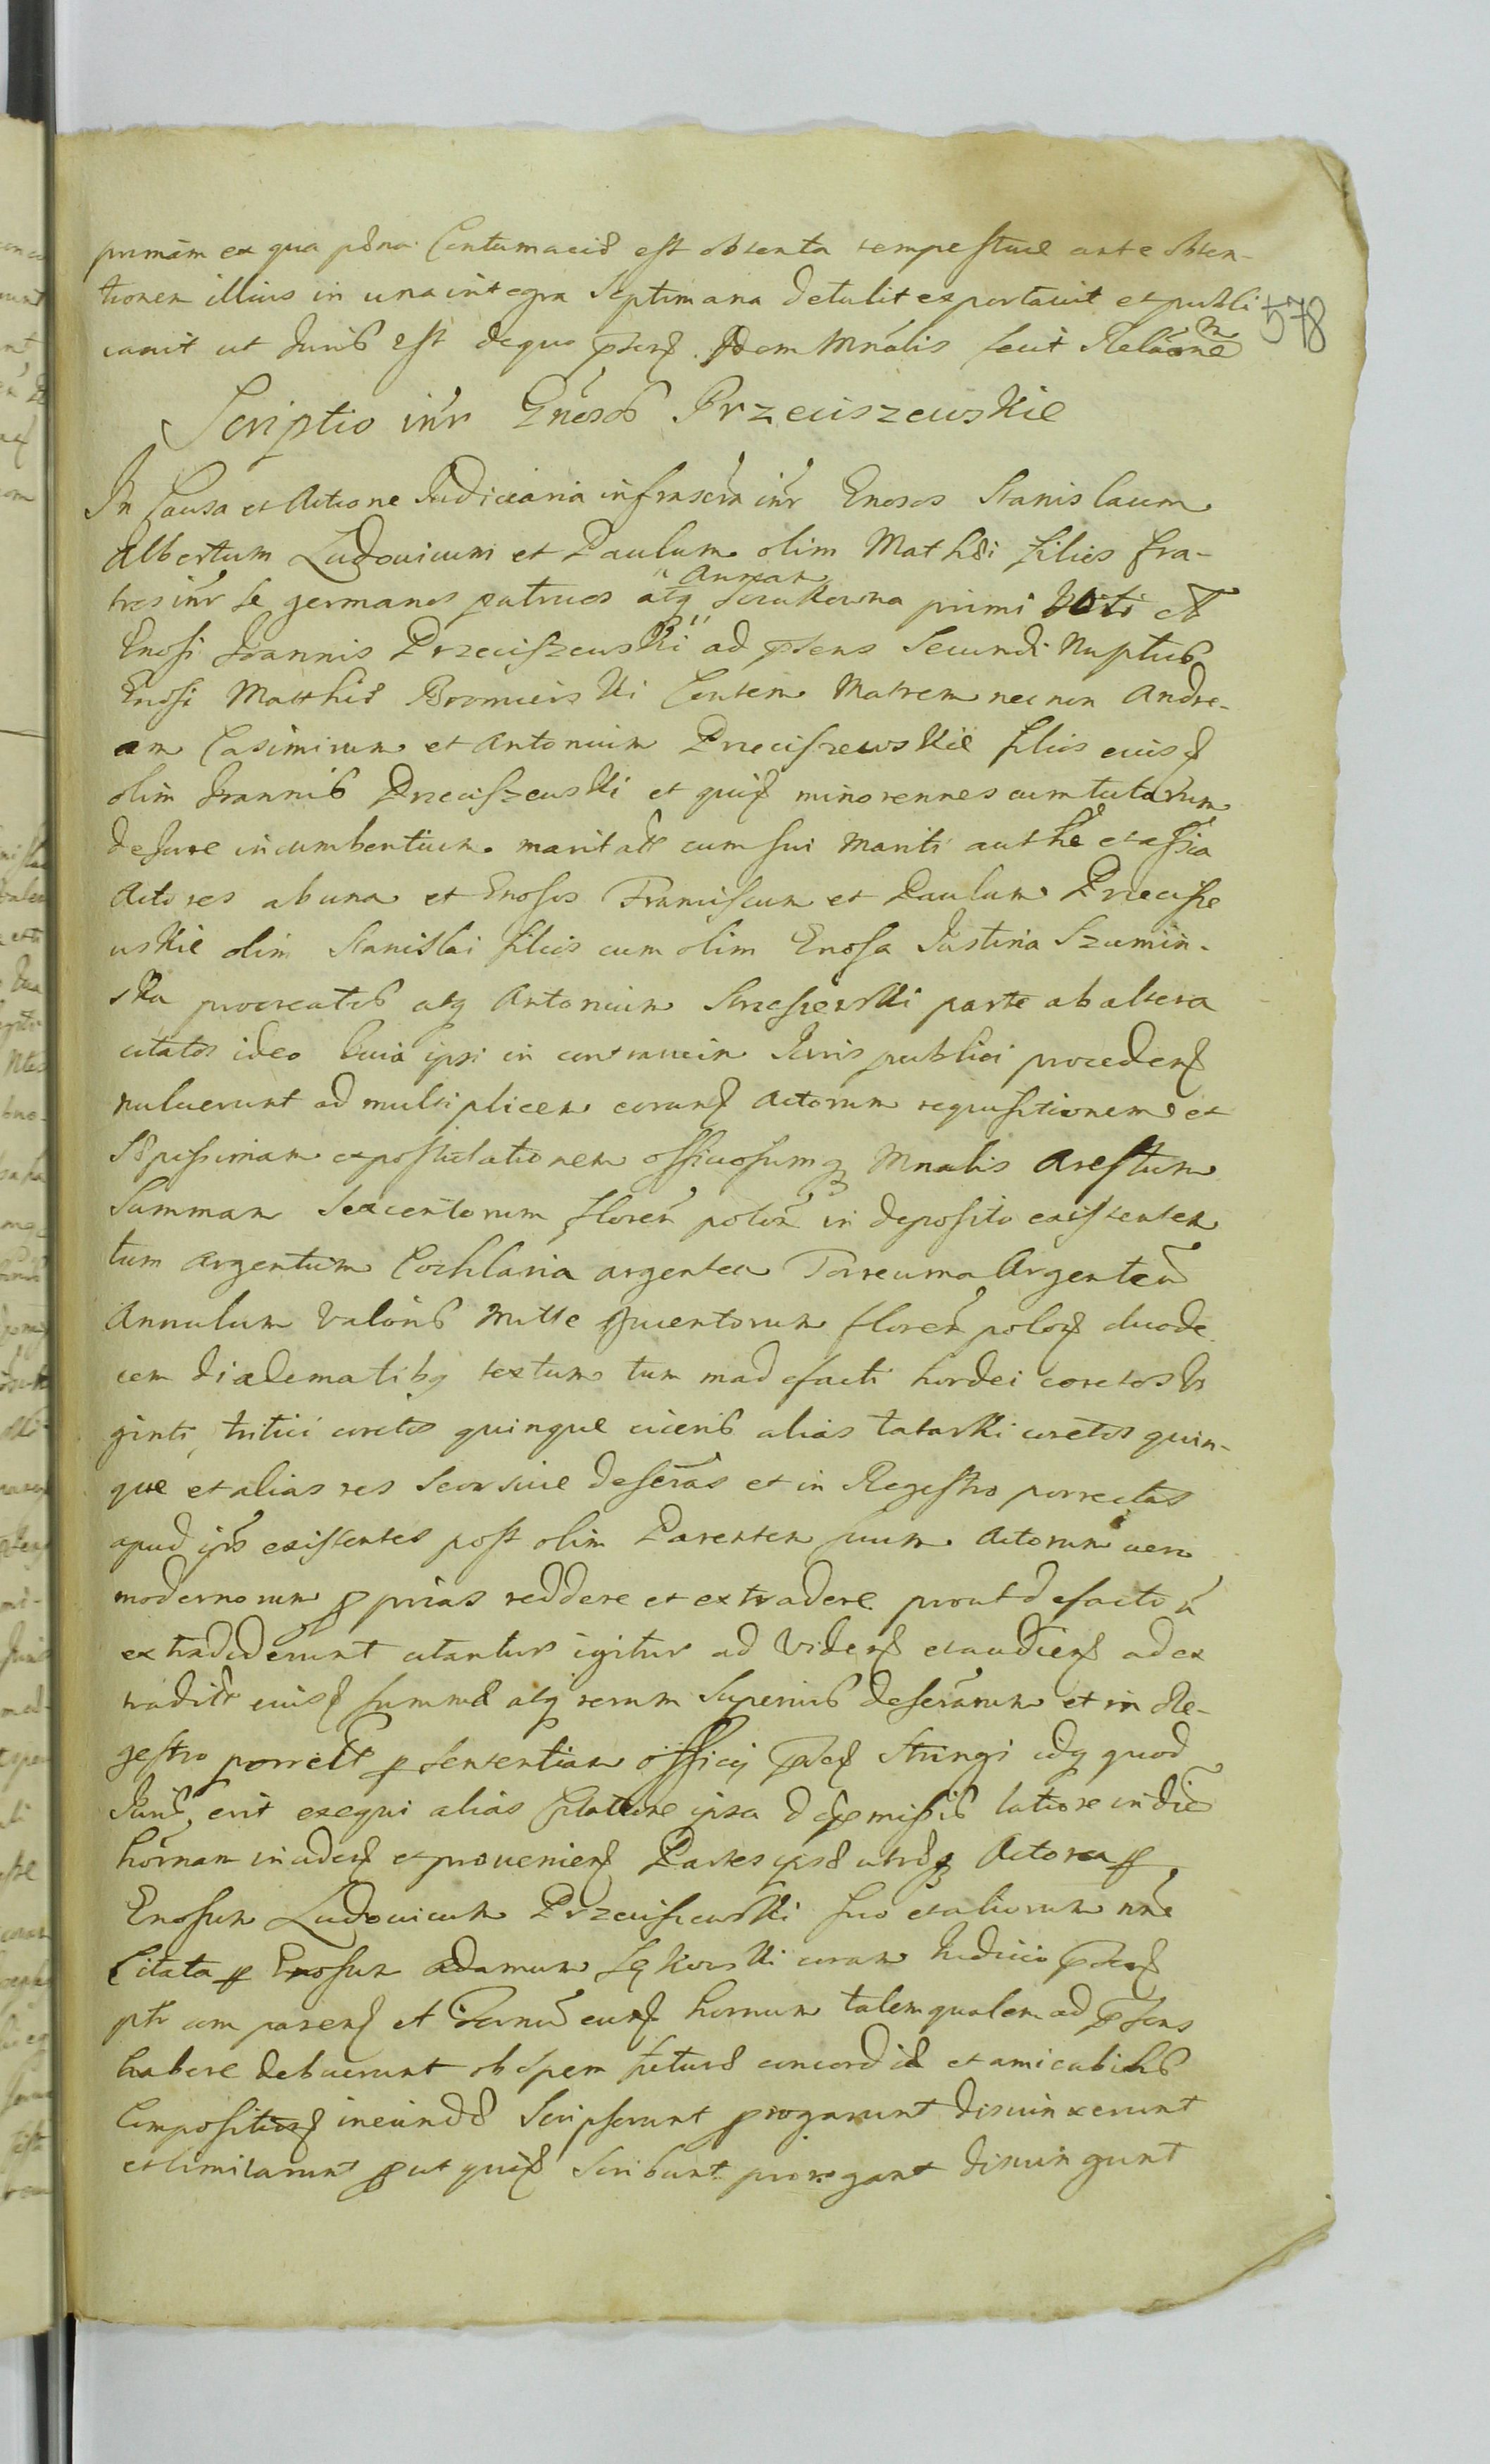 primam ex qua pæna Contumaciæ est obtenta tempestive ante obten-
tionem illius in una integra Septimana detulit exportavit et publi
cavit ut Juris est de quo psens Idem Mnalis fecit Relaõnem
578
Scriptio inr Gnosos Przeciszewskie
In Causa et Actione Judiciaria infrascra inr Gnosos Stanislaum
Albertum Ludovicum et Paulum olim Mathæi filios fra-
tres inr se germanos patruos atq Annam primi Voti et
Gnosi Joannis Przeciszewski ad psens Secundi Nuptus
Gnosi Matthiæ Bromierski Consen Matrem nec non Andre-
am Casimirum et Antonium Przeciszewskie filios eiusd
olim Joannis Przeciszewski et quid minorennes cum tutorum
de Jure incumbentium maritatæ cum sui Mariti auth et assia
Actores ab una et Gnosos Franciscum et Paulum Przecisze
wskie olim Stanislai filios cum olim Gnosa Justina Szumin-
ska procreatos atq Antonium parte ab altera
citatos ideo Quia ipsi in Juris publici proceden
noluerunt ad multiplicem eorund Actorum requisitionem et
Sæpissimam expostulationem officiosumq Mnalis Arestum
Summam Sexcentorum floren polon in deposito existentem
tum Argentum Cochlaria argentea Argenteu
Annulum Valoris Mille floren polon duode
cem diadematibq textum tum madefacti hordei coretos Vi
ginti, tritici coretos quinque ciceris alias tatarki coretos quin-
que et alias res Seorsive descras et in Regestro porrectas
apud ipsos existentes post olim Parentem suum Actorum vero
modernorum pprias reddere et extradere prout de facto n
extradiderunt citantur igitur ad Viden et audien ad ex
tradit eiusd summæ atq rerum Superius descrarum et in Re-
gestro porrect p sententiam officii psen Stringi idq quod
Juris erit exequi alias Citatione ipsa de pmissis latiore in die
hornam inciden et provenien Partes ipsæ utræq Actorea p
Gnosum Ludovicum Przeciszewski suo et aliorum nne
Citata p Gnosum Adamum coram Judicio psen
ptr comparen et Termin eund hornum talem qualem ad psens
habere debuerunt ob spem futuræ concordiæ et amicabilis
Compositionis ineundæ Scripserunt prorogarunt disiunxerunt
et limitarunt put quid Scribunt prorogant disiungunt